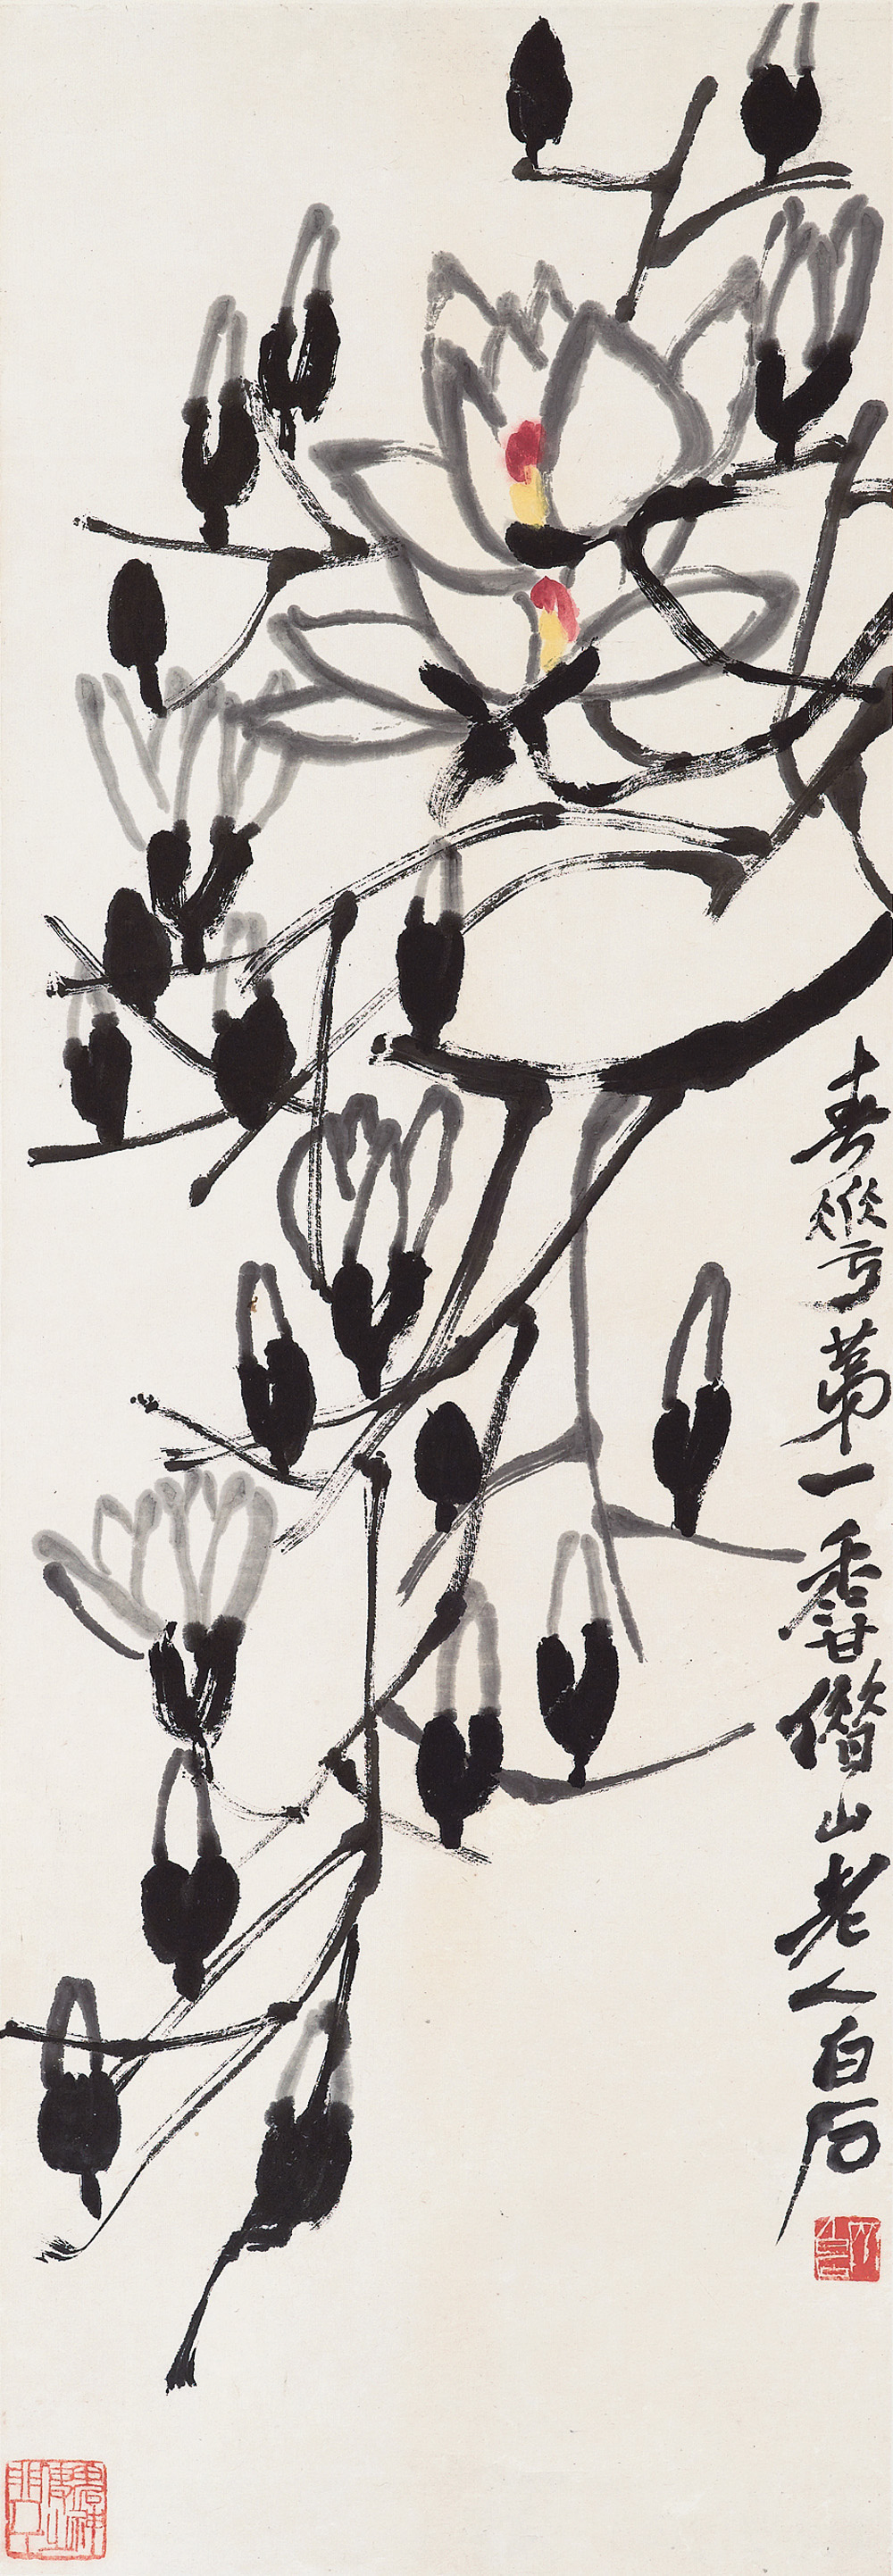 春華第一香借山老人白石